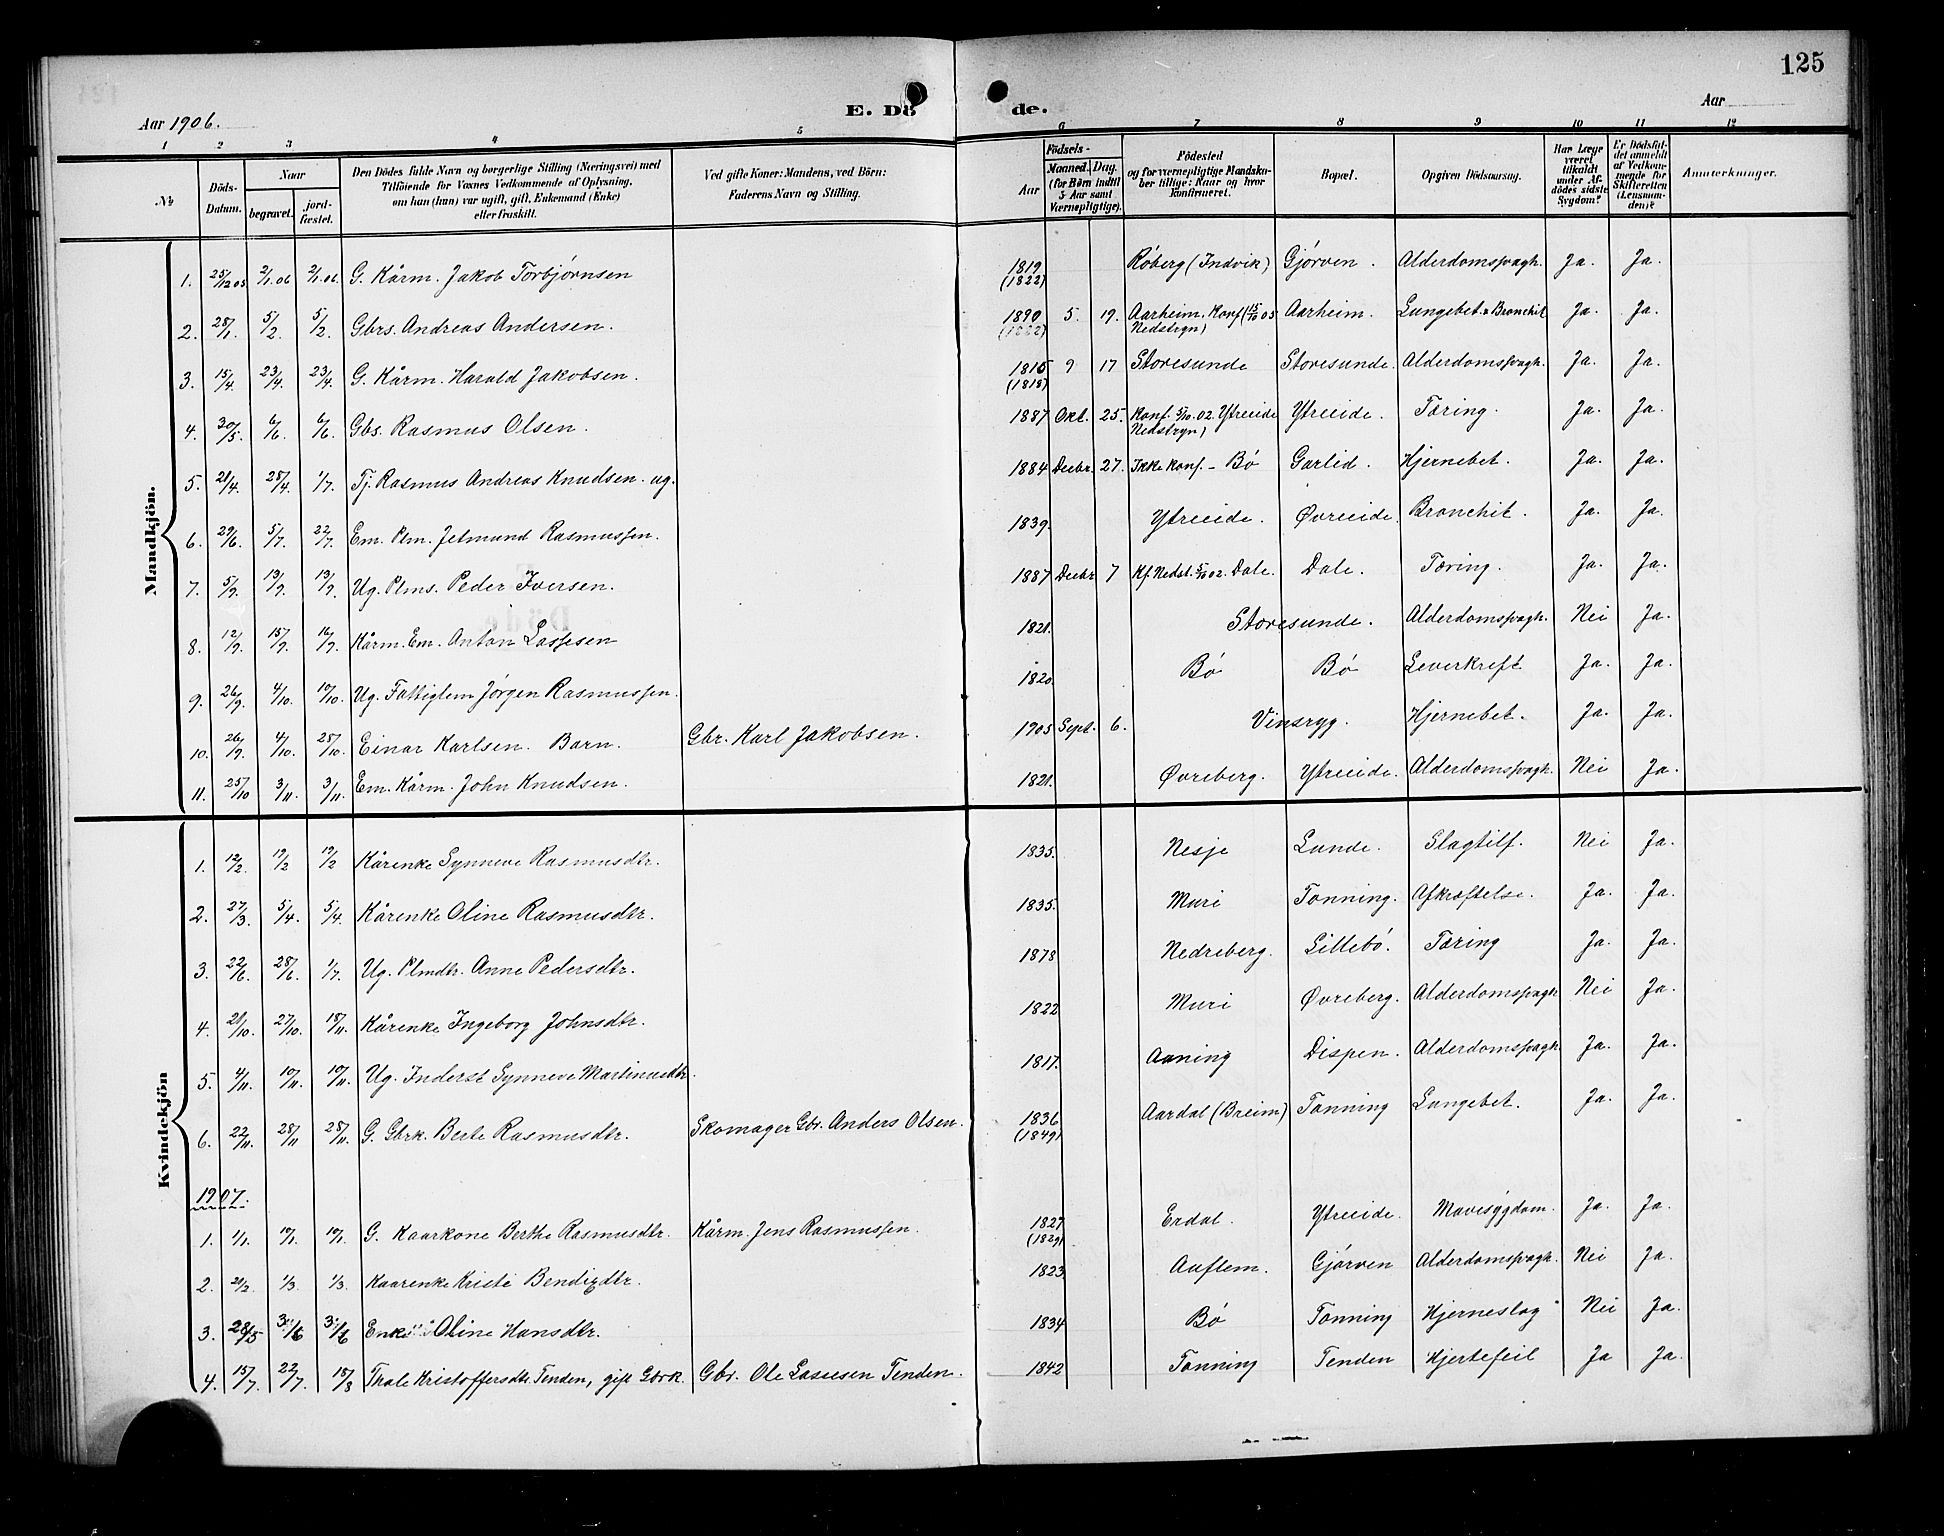 125
Aar 1906. E. Dö de. Aar
1 2 3 4 5 6 7 8 9 10 11 12
№ Döds-Datum. Naar begravet. jordfæstet. Den Dödes fulde Navn og borgerlige Stilling (Næringsvei) med Tilföiende for Voxnes Vedkommende af Oplysning, om han (hun) var ugift, gift, Enkemand (Enke) eller fraskilt. Ved gifte Koner: Mandens, ved Börn: Faderens Navn og Stilling. Födsels- Aar Maaned. Dag. (for Börn indtil 5 Aar samt Værnepligtige). Födested og for værnepligtige Mandskaber tillige: Naar og hvor konfirmeret. Bopæl. Opgiven Dödsaarsag. Har Læge været tilkaldt under Afdödes sidste Sygdom? Er Dödsfaldet anmeldt af Vedkommende for Skifteretten (Lensmanden)? Anmærkninger.
Mandkjön.
1. 25/12 05 2/1.06 2/1.06. G. Kårm. Jakob Torbjørnsen 1819 (1822) Røberg (Indvik) Gjørven. Alderdomssvagh. Ja. Ja.
2. 28/1. 5/2. 5/2. Gbrs. Andreas Andersen. 1890 (1882) 5. 19. Aarheim. Konf (15/10 05 Nedstryn) Aarheim. Lungebet. & Bronchit Ja. Ja.
3. 15/4. 23/4. 23/4. G. Kårm. Harald Jakobsen. 1815 (1818) 9 17 Storesunde Storesunde. Alderdomssvagh. Ja. Ja.
4. 30/5. 6/6. 6/6. Gbs. Rasmus Olsen. 1887 Okt. 25. Konf. 5/10.02. Ytreeide Nedstryn) Ytreeide. Tæring. Ja. Ja.
5. 21/4. 28/4. 1/7. Tj. Rasmus Andreas Knudsen. ug. 1884 Decbr. 27. Ikke konf. - Bø Garlid. Hjernebet. Ja. Ja.
6. 29/6. 5/7. 22/7. Em. Plm. Jetmund Rasmussen. 1839. Ytreeide. Øvreeide. Bronchit. Ja. Ja.
7. 5/9. 13/9. 13/9. Ug. Plms. Peder Iversen. 1887 Decbr 7 Kf. Nedst. 5/10 02. Dale. Dale. Tæring. Ja. Ja.
8. 12/9. 15/9. 16/9. Kårm. Em. Anton Lassesen 1821. Storesunde. Alderdomssvagh. Nei Ja.
9. 26/9. 4/10. 10/10. Ug. Fattiglem Jørgen Rasmussen. 1820. Bø Bø Leverkreft Ja. Ja.
10. 26/9. 4/10. 25/10. Einar Karlsen. Barn. Gbr. Karl Jakobsen. 1905 Sept. 6. Vinsryg. Hjernebet. Ja. Ja.
11. 25/10 3/11. 3/11. Em. Kårm. John Knudsen. 1821. Øvreberg. Ytreeide. Alderdomssvagh. Nei Ja.
Kvindekjön
1. 12/2. 19/2 19/2 Kårenke Synneve Rasmusdtr. 1835. Nesje Lunde. Slagtilf. Nei Ja.
2. 27/3. 5/4. 5/4. Kårenke Oline Rasmusdtr. 1835. Muri Tonning. Afkræftelse. Ja. Ja.
3. 22/6. 28/6. 1/7. Ug. Plmdtr. Anne Pedersdtr. 1878 Nedreberg. Lillebø. Tæring Ja. Ja.
4. 21/10. 27/10. 18/11. Kårenke Ingeborg Johnsdtr. 1822 Muri Øvreberg. Alderdomssvagh Nei Ja.
5. 4/11. 10/11. 10/11. Ug. Inderst Synneve Martinusdtr. 1817. Aaning Dispen. Alderdomssvagh. Ja. Ja.
6. 22/11. 28/11 28/11. G. Gbrk. Berte Rasmusdtr. Skomager Gbr. Anders Olsen. 1836 (1849) Aardal (Breim) Tonning Lungebet. Ja. Ja.
1907.
1. 1/1. 10/1. 10/1. G. Kaarkone Berthe Rasmusdtr. Kårm. Jens Rasmussen. 1827 (1829) Erdal. Ytreeide. Mavesygdom. Ja. Ja.
2. 20/2. 1/3. 1/3. Kaarenke Kristi Bendixdtr. 1823 Auflem. Gjørven Alderdomssvagh. Nei Ja.
3. 28/5 3/6 3/6 Enke Oline Hansdtr. 1834 Bø Tonning Hjerneslag Nei Ja.
4. 15/7. 22/7. 18/8 Thale Kristoffersdtr Tenden, gift Gbrk. Gbr. Ole Lassesen Tenden. 1842 Tonning Tenden Hjertefeil Ja Ja.